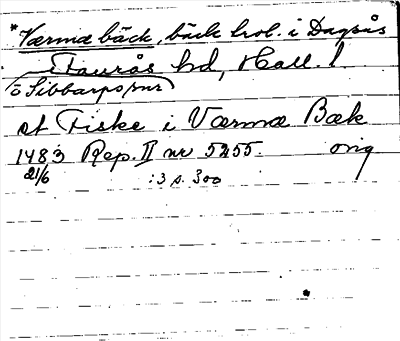 *Værmæ bäck, bäck trol. i Dagsås
i Faurås hd, Hall. l
ö Sibbarps snr
et Fiske i Værmæ Bæk
1483 Rep. II nr 5255. orig
21/6 :3 s. 300